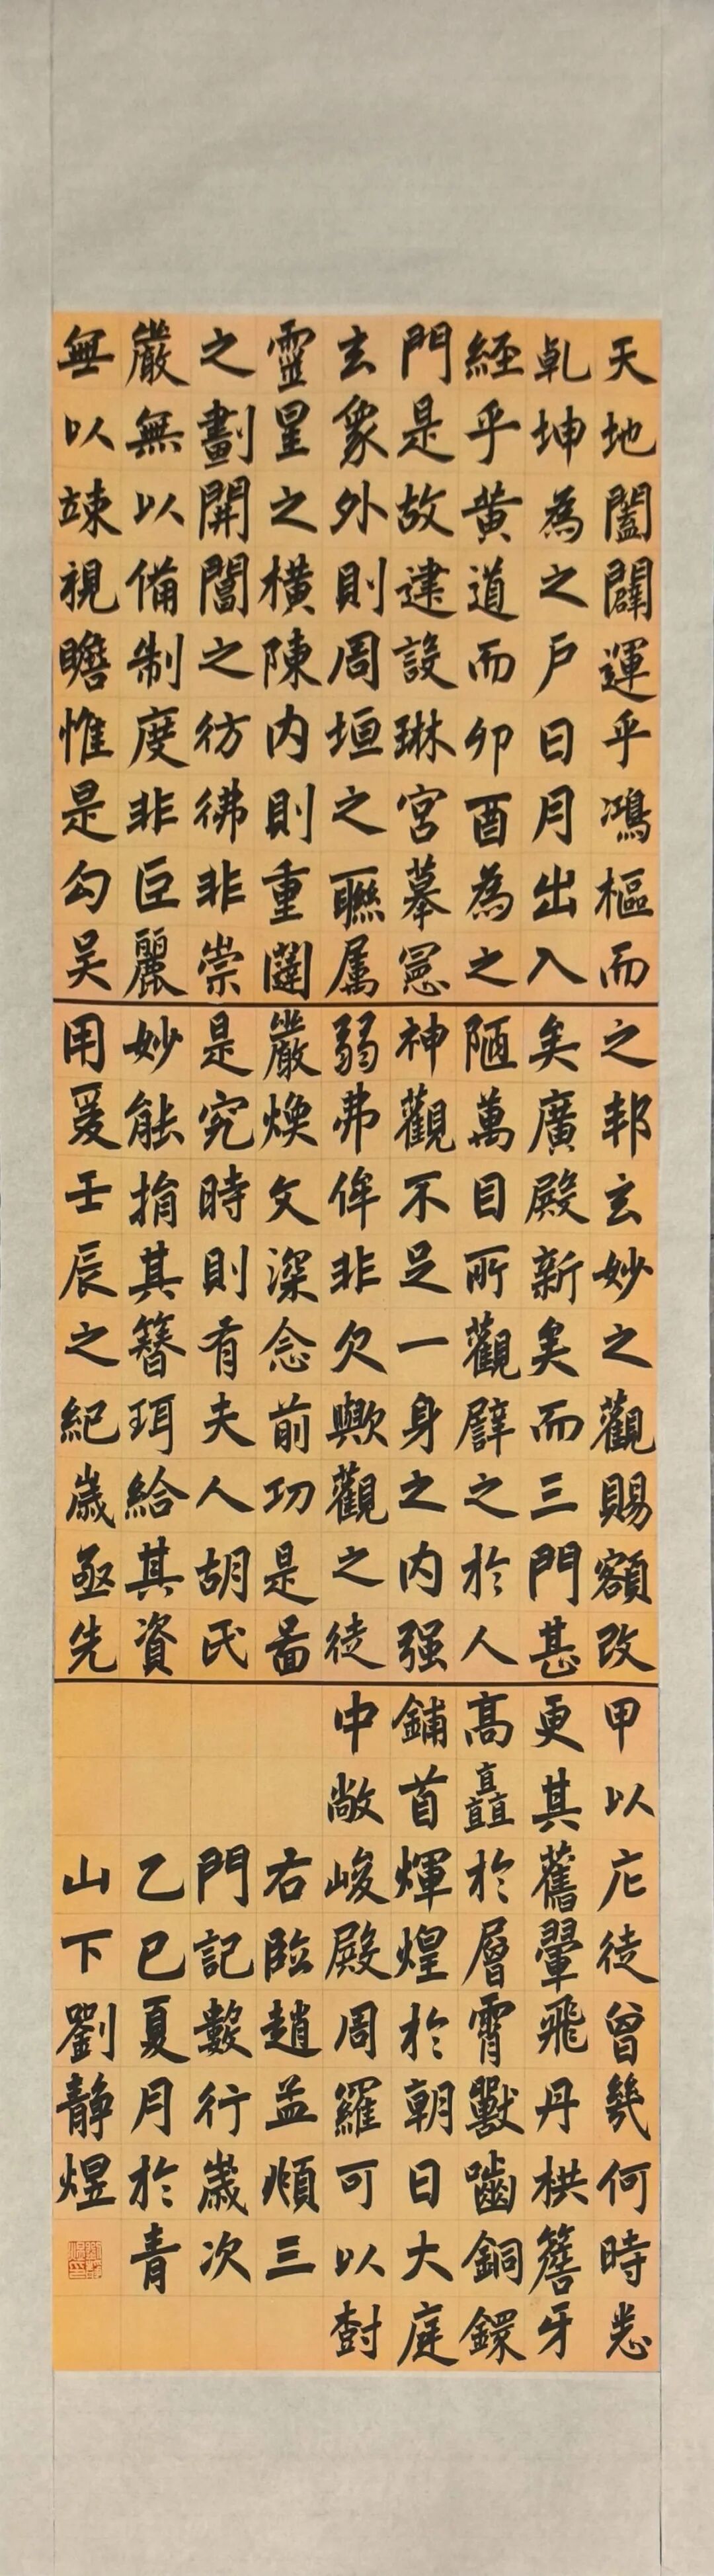 天地闔闢運乎鴻樞而
乹坤為之戶日月出入
經乎黃道而卯酉為之
門是故建設琳宮摹憲
玄象外則周垣之聯屬
靈星之橫陳内則重闥
之劃開闔之彷彿非崇
嚴無以備制度非巨麗
無以竦視瞻惟是勾吴
之邦玄妙之觀賜額改
矣廣殿新矣而三門甚
陋萬目所觀譬之於人
神觀不足一身之内强
弱弗侔非欠歟觀之徒
嚴煥文深念前功是啚
是究時則有夫人胡氏
妙能捐其簪珥給其資
用爰壬辰之紀歲亟先
甲以庀徒曾幾何時悉
更其舊翬飛丹栱簷牙
髙矗於層霄獸嚙銅鐶
鋪首煇煌於朝日大庭
中敞峻殿周羅可以樹
右臨趙孟頫三
門記數行歲次
乙巳夏月於青
山下劉靜煜